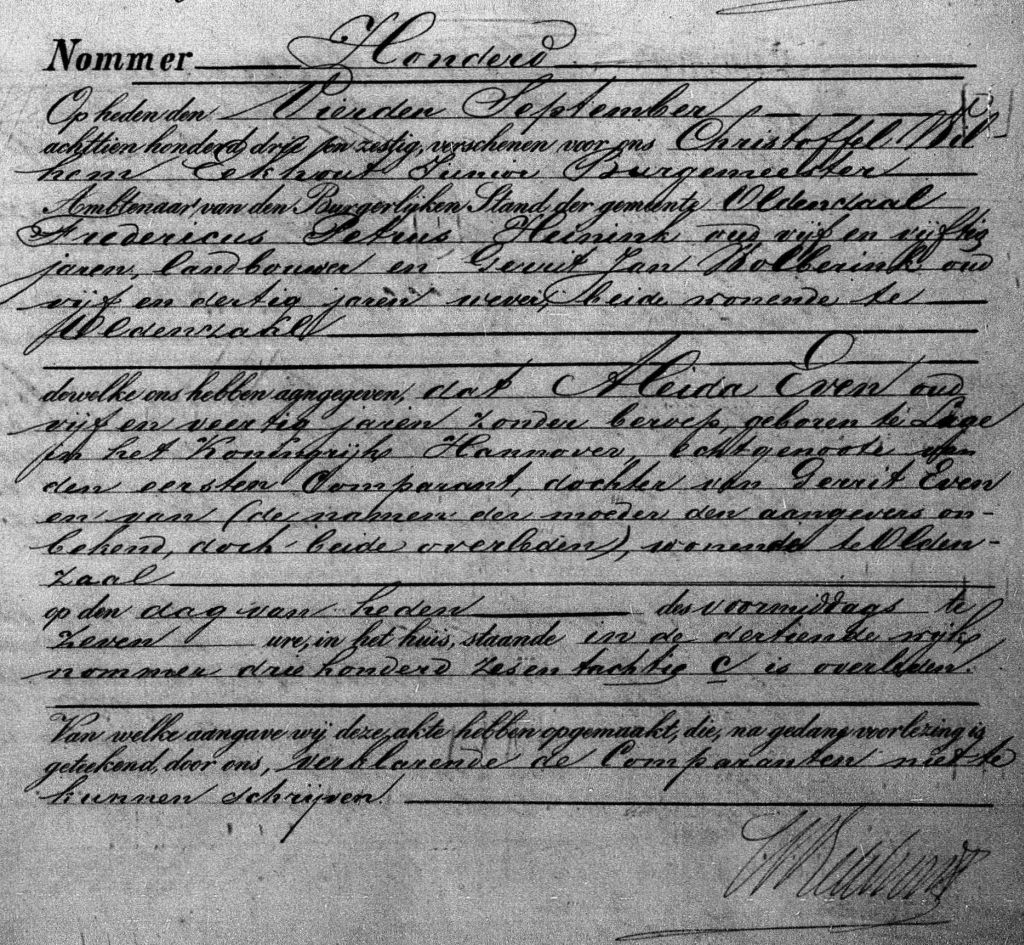 Nommer Honderd
Op heden den Vierden September
achttien honderd drie en zestig, verschenen voor ons Christoffel Wil
hem Eekhout Junior Burgemeester
Ambtenaar van den Burgerlijken Stand, der gemeente Oldenzaal
Fredericus Petrus Heinink oud vijf en vijftig
jaren, landbouwer en Gerrit Jan Wolberink oud
vijf en dertig jaren wever, beide wonende te
Oldenzaal
dewelke ons hebben aangegeven, dat Aleida Even oud
vijf en veertig jaren zonder beroep geboren te Lage
in het Koningrijk Hannover, echtgenoote van
den eersten Comparant, dochter van Gerrit Even
en van (de namen der moeder den aangevers on-
bekend, doch beide overleden), wonende te Olden-
zaal
op den dag van heden des voormiddags te
zeven ure, in het huis, staande in de dertiende wijk
nommer drie honderd zesentachtig c is overleden.
Van welke aangave wij deze akte hebben opgemaakt, die, na gedane voorlezing is
geteekend, door ons, verklarende de Comparanten niet te
kunnen schrijven.